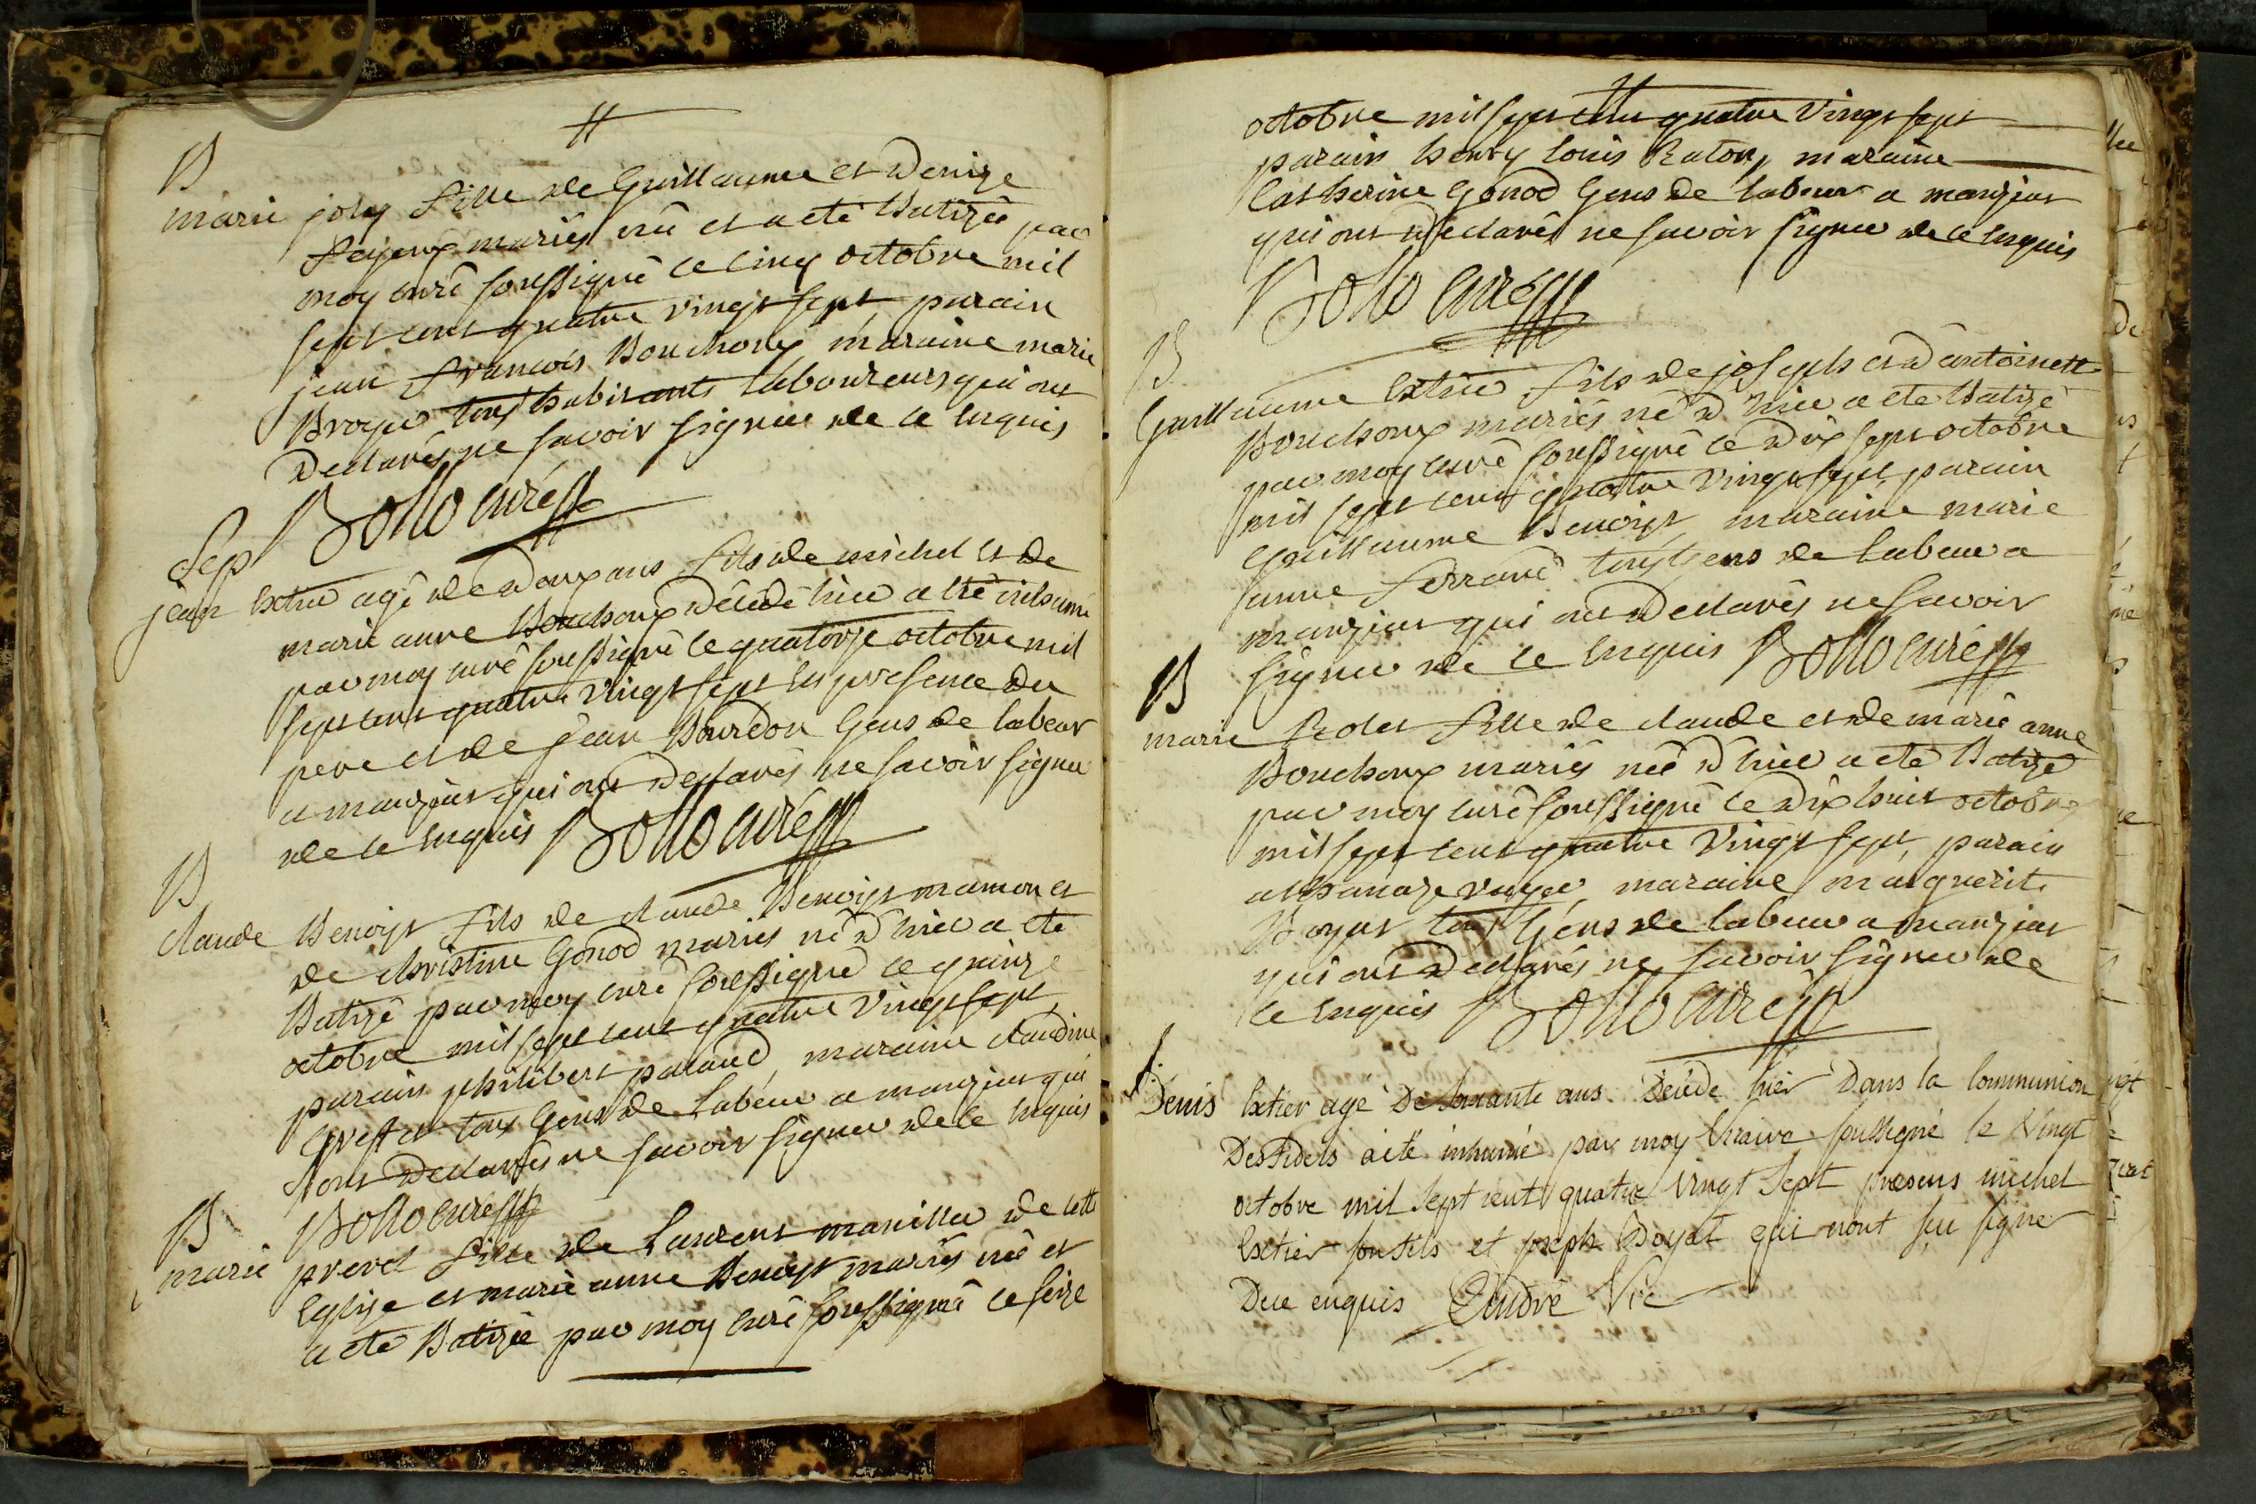 B
marie joly fille de Guillaume et Denize
feijoux mariés née et a eté Batizée par
moy curé soussigné le cinq octobre mil
sept cent quatre vingt sept, parain
jean francois Bouchoux maraine marie
Broyer tous habitants laboureurs qui ont
declarés ne savoir signer de ce enquis
Bollo curé
Sep
jean Extier agé de doux ans fils de michel et de
marie anne Bouchoux décédé hier a été inhumé
par moy curé soussigné le quatorze octobre mil
sept cent quatre vingt sept en presence du
pere et de jean Bourdon Gens de labeur
a manziat qui ont declarés ne savoir signer
de ce enquis Bollo curé
B
claude Benoist fils de claude Benoist mamon et
de christine Gonod mariés né d'hier a ete
Batizé par moy curé soussigné le quinze
octobre mil sept cent quatre vingt sept
parain philibert palaud, maraine claudine
tous Gens de labeur a manziat qui
n'ont declarés ne savoir signer de ce enquis
Bollo curé
B
marie prevel fille de Laurent manilier de cette
Eglise et marie anne Benoist mariés née et
a ete Batizée par moy curé soussigné le seize
octobre mil sept cent quatre vingt sept
parain henry louis Raton, maraine
Catherine Gonod Gens de labeur a manziat
qui ont declarés ne savoir signer de ce enquis
Bollo curé
B
Guillaume Extier fils de joseph et d'antoinette
Bouchoux mariés né d'hier a ete Batizé
par moy curé soussigné le dix sept octobre
mil sept cent quatre vingt sept, parain
Guillaume Benoist, maraine marie
anne ferrand tous Gens de labeur a
manziat qui ont declarés ne savoir
signer de ce enquis Bollo curé
B
marie Rolet fille de claude et de marie anne
Bouchoux mariés née d'hier a eté Batizé
par moy curé soussigné le dix huit octobre
mil sept cent quatre vingt sept, parain
athanaze voyer, maraine marguerite
Boyat tous Gens de labeur a manziat
qui ont declarés ne savoir signer de
ce enquis Bollo curé
S.
Denis Extier agé De soixante ans. Décédé hier Dans la Communion
Des fidels a eté inhumé par moy Vicaire soussigné le Vingt
octobre mil sept cent quatre Vingt Sept presens michel
Extier son fils et joseph Boyat qui n'ont sçu signer
De ce enquis André Vic